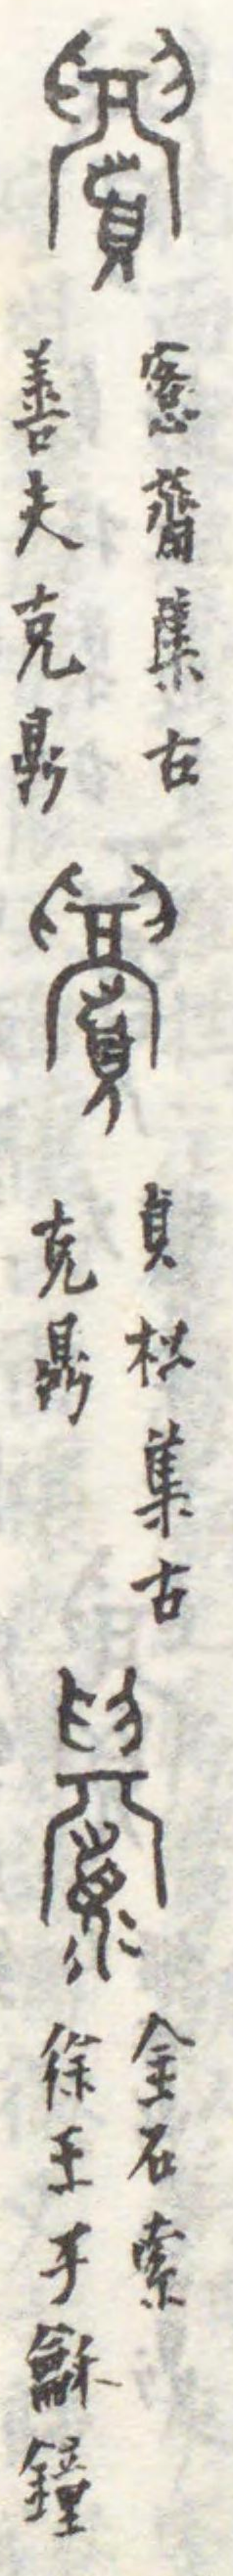 愙齋集古
善夫克鼎
貞松集古
克鼎
金石索
徐王子龢鐘